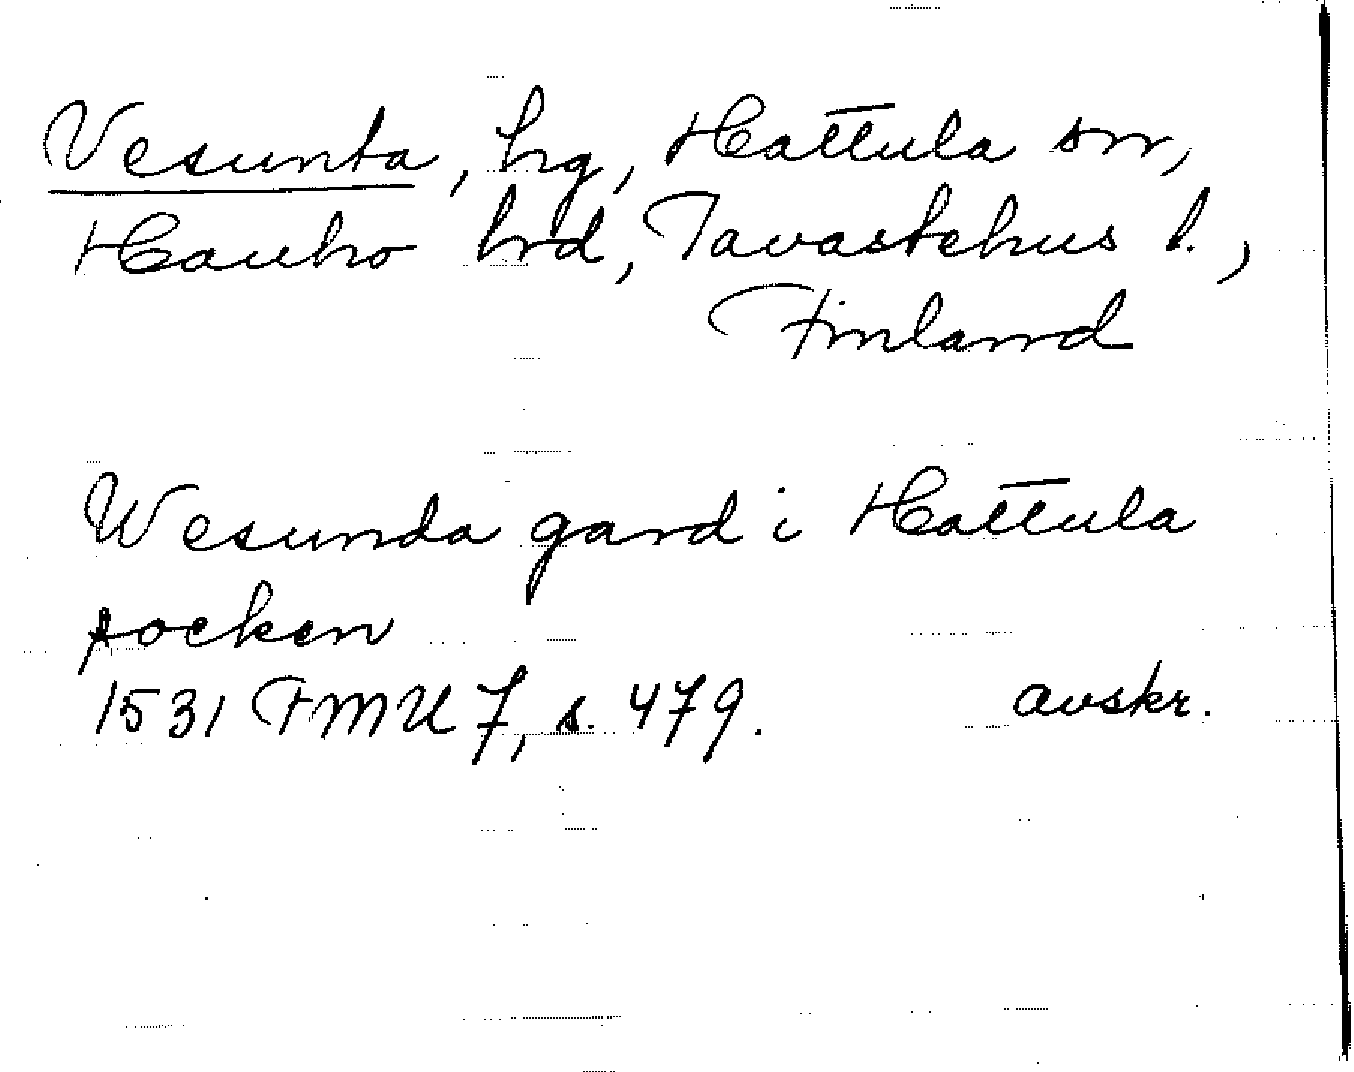 Vesunta, hg, Hattula sn,
Hauho hrd, Tavastehus l.,
Finland
Wesunda gard i Hattula
socken
1531 FMU 7, s. 479. avskr.